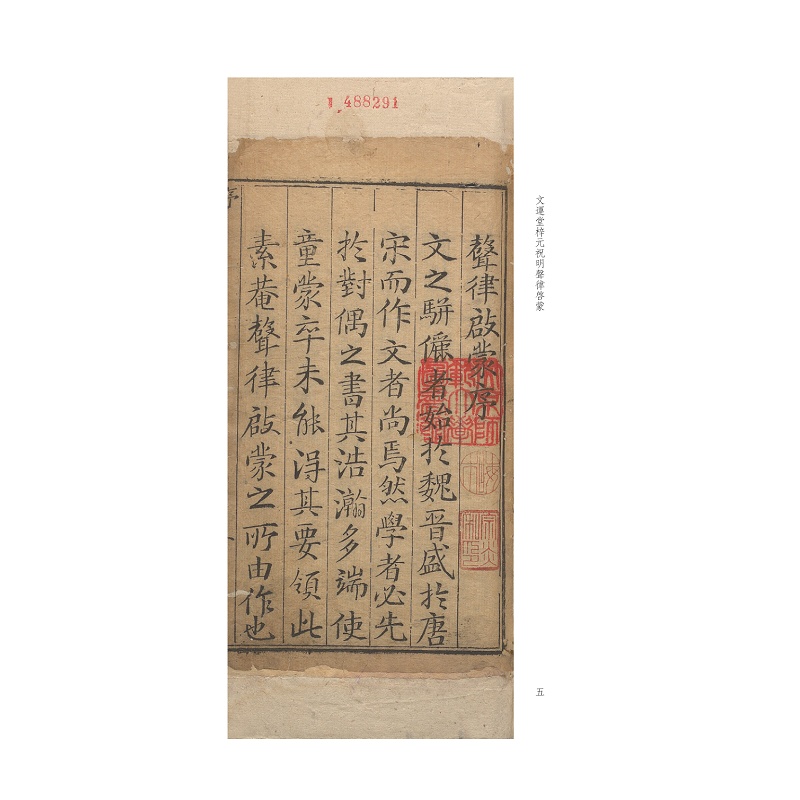 488291
聲律啟蒙序
文之駢儷者始扵魏晉盛扵唐
宋而作文者尚焉然學者必先
扵對偶之書其浩瀚多端使
童蒙卒未能得其要領此
素菴聲律啟蒙之所由作也
序
文運堂梓元祝明聲律啓蒙
五